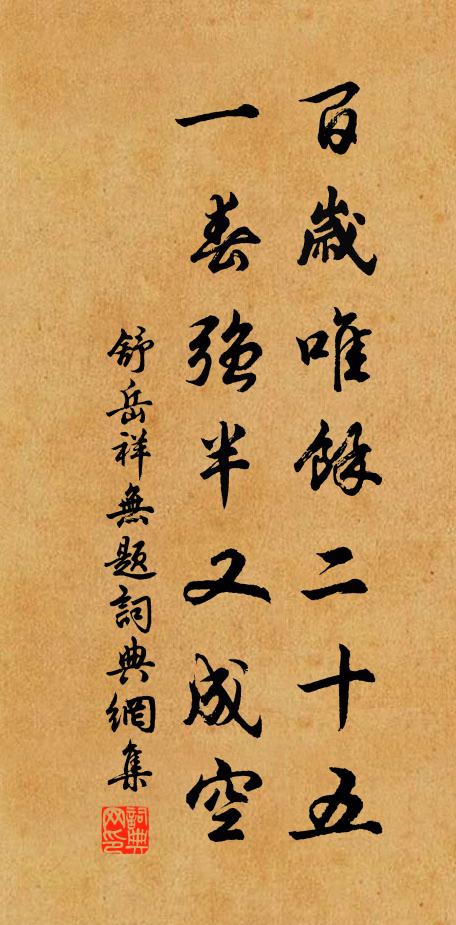 百歲唯餘二十五
一春強半又成空
舒岳祥無題詞典網集
詞典网印